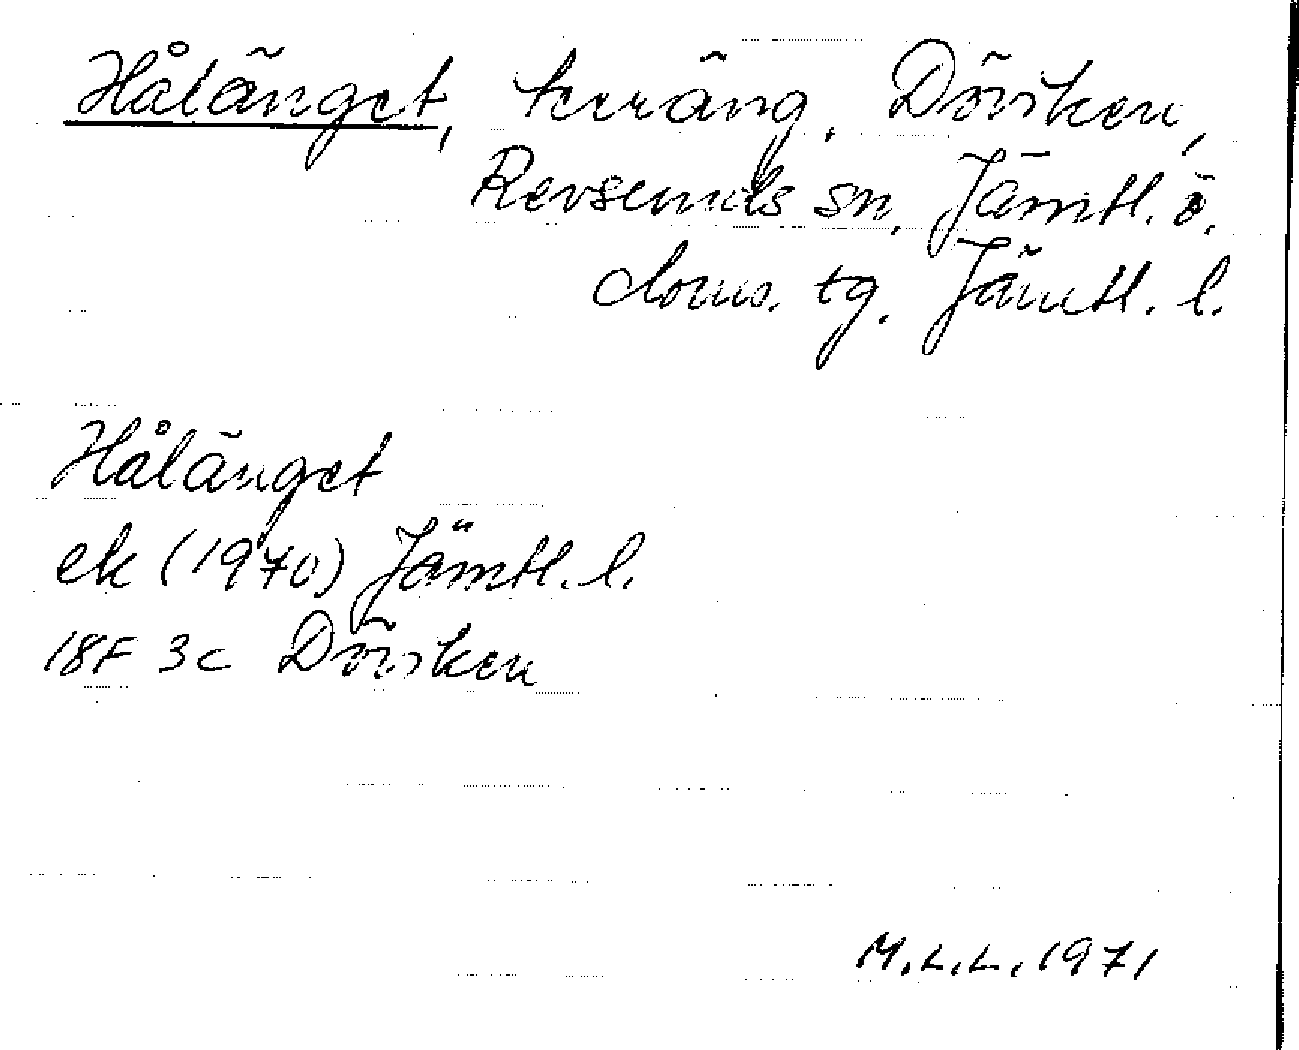 Hålänget, terräng, Döviken,
Revsunds sn. Jämtl. ö.
doms. tg. Jämtl. l.
Hålänget
ek (1970) Jämtl. l.
18F 3c Döviken
M.L.L. 1971